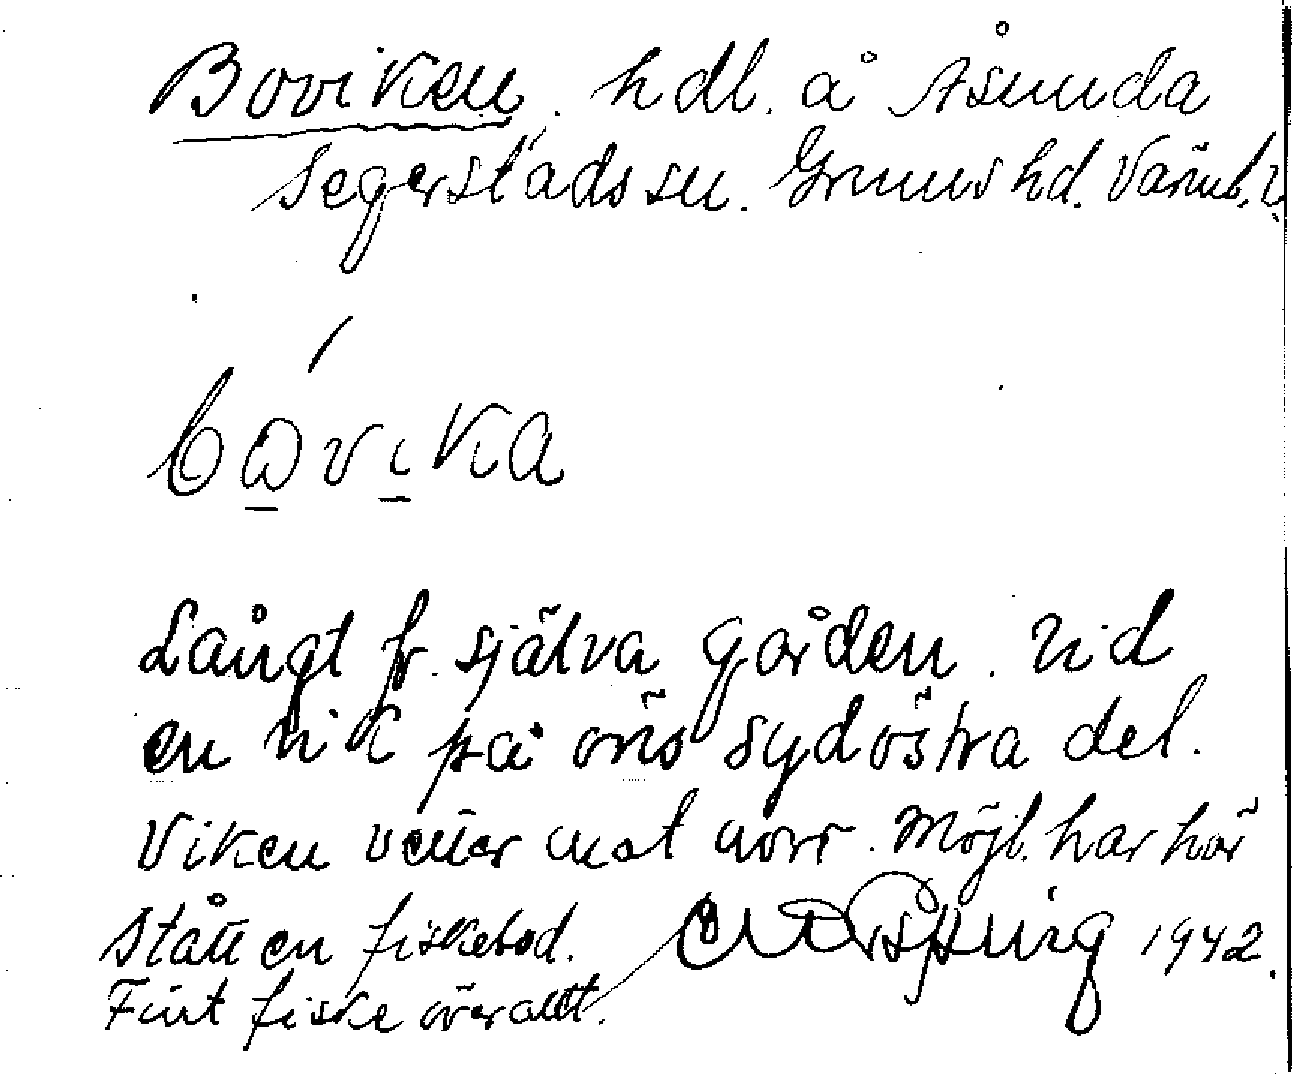 Boviken. hdl. å Åsunda
Segerstads sn. Grums hd. Värml.
bωvika
Långt fr. själva gården. Vid
en vik på öns sydöstra del.
Viken vetter mot norr. Möjl. har här
stått en fiskebod. 1942.
Fint fiske överallt.